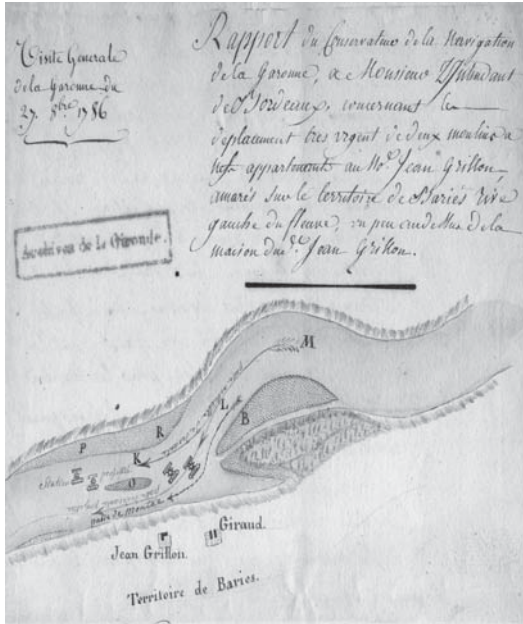 Visite Generale
de la Garonne du
27. 8bre 1786
Rapport du Conservateur de la Navigation
de la Garonne, a Monsieur L'Intendant
de Bordeaux, concernant le
deplacement tres urgent de deux moulins a
nef appartenants au No. Jean Grillon,
amarés sur le territoire de Bariés rive
gauche du fleuve, un peu au dessus de la
maison dud. Jean Grillon.
Archives de la Gironde
M
L
R
B
P
K
O
Station
passe de montée
Giraud.
Jean Grillon.
Territoire de Baries.